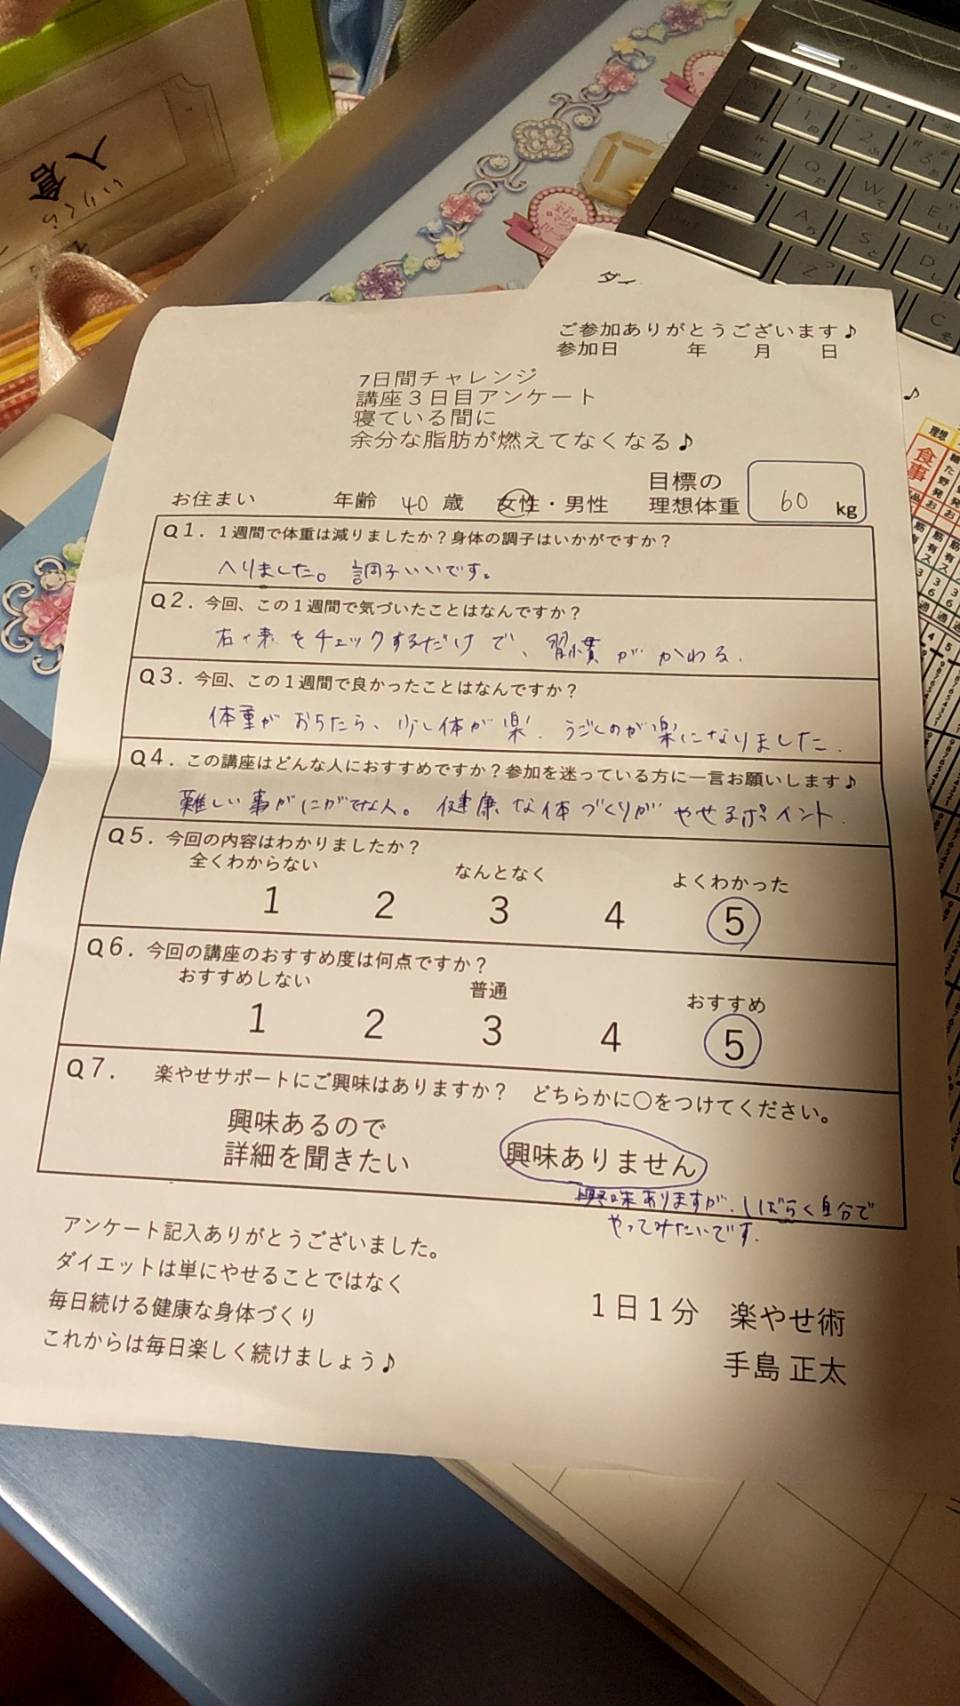 入倉
いりくら
ダイ
ご参加ありがとうございます♪
参加日 年 月 日
7日間チャレンジ
講座３日目アンケート
寝ている間に
余分な脂肪が燃えてなくなる♪
お住まい 年齢 40 歳 女性・男性 目標の理想体重 60 kg
Q1．１週間で体重は減りましたか？身体の調子はいかがですか？
へりました。調子いいです。
Q2．今回、この１週間で気づいたことはなんですか？
をチェックするだけで、習慣がかわる.
Q3．今回、この１週間で良かったことはなんですか？
体重がおちたら、少し体が楽.うごくのが楽になりました.
Q4．この講座はどんな人におすすめですか？参加を迷っている方に一言お願いします♪
難しい事がにがてな人。健康な体づくりがやせるポイント.
Q5．今回の内容はわかりましたか？
全くわからない なんとなく よくわかった
1 2 3 4 5
Q6．今回の講座のおすすめ度は何点ですか？
おすすめしない 普通 おすすめ
1 2 3 4 5
Q7． 楽やせサポートにご興味はありますか？ どちらかに〇をつけてください。
興味あるので
詳細を聞きたい
興味ありません
興味ありますが、しばらく自分で
やってみたいです.
アンケート記入ありがとうございました。
ダイエットは単にやせることではなく
毎日続ける健康な身体づくり
これからは毎日楽しく続けましょう♪
１日１分 楽やせ術
手島 正太
理想
食事